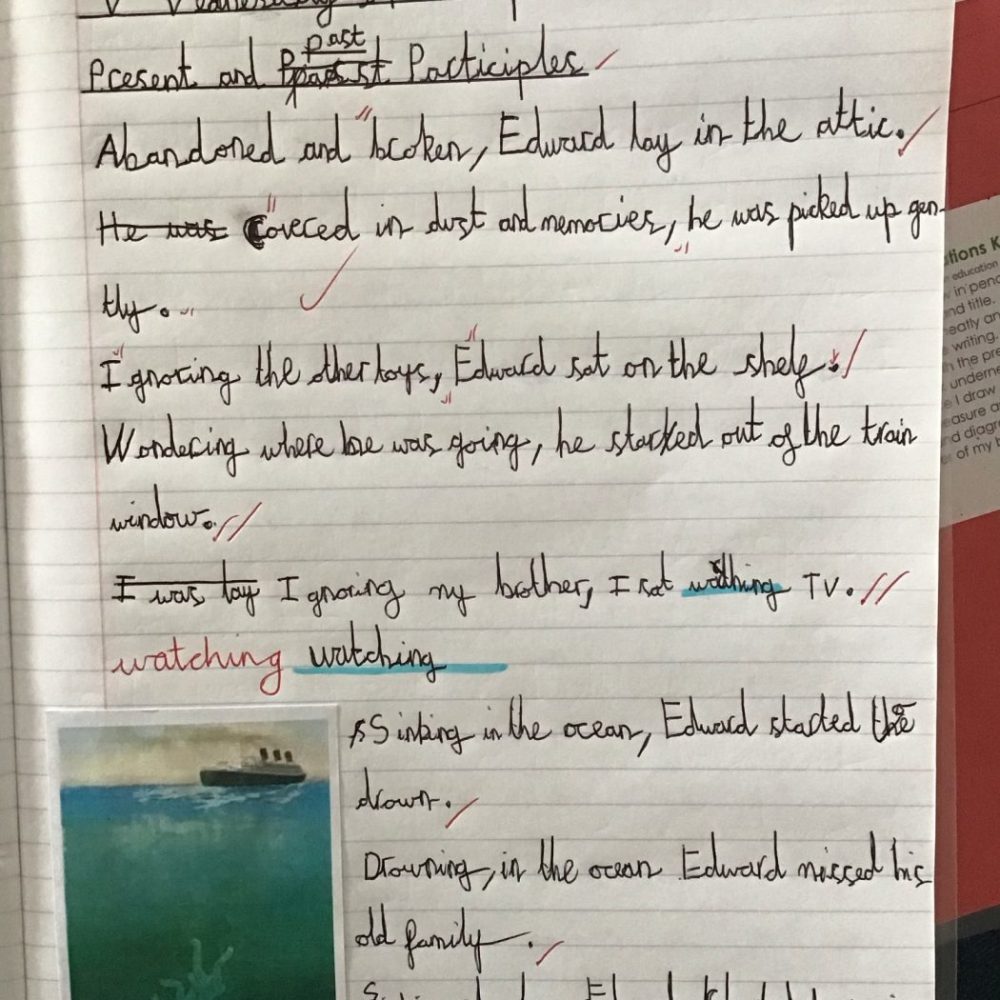 Present and past Participles
Abandoned and broken, Edward lay in the attic.
He was Covered in dust and memories, he was picked up gen-
tly.
Ignoring the other toys, Edward sat on the shelf.
Wondering where he was going, he starked out of the train
window.
I was lay Ignoring my brother, I sat wathing TV.
watching watching
Sinking in the ocean, Edward started the
drown.
Drowning, in the ocean Edward missed his
old family.
tions K
education
in penc
nd title.
eatly an
writing.
n the pre
underne
I draw
easure a
nd diagr
of my b